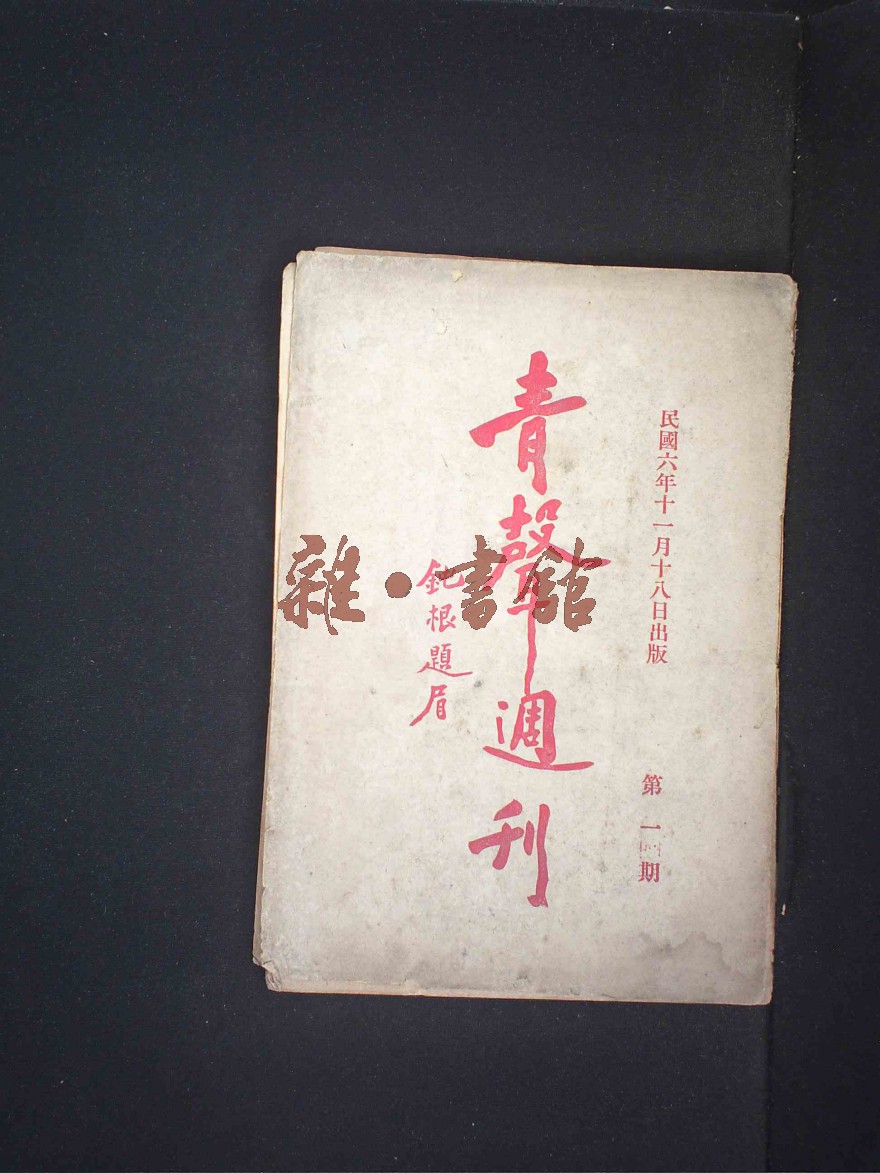 民國六年十一月十八日出版
第一四期
青聲週刊
鈍根題眉
雜·書館